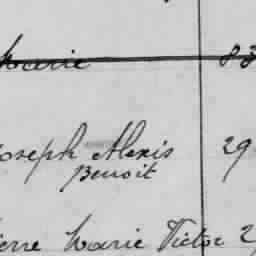 Marie 83
Joseph Alexis 29
Benoit
ierre Marie Victor 2